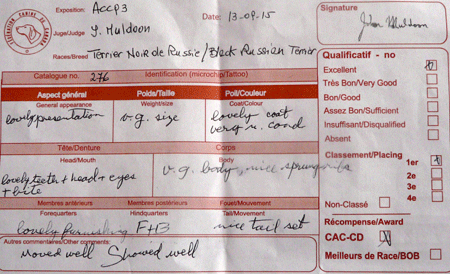 FÉDÉRATION CANINE DU
Exposition: ACCP3
Date: 13-09-15
Signature
John Muldoon
Juge/Judge J. Muldoon
Races/Breed Terrier Noir de Russie/Black Russian Terrier
Catalogue no. 276 Identification (microchip/Tattoo)
Aspect général Poids/Taille Poil/Couleur
General appearance Weight/size Coat/Colour
lovely presentation v.g. size lovely coat
very n. cond
Tête/Denture Corps
Head/Mouth Body
lovely teeth + head + eyes v.g. body, nice spring ribs
+ bite
Membres antérieurs Membres postérieurs Fouet/Mouvement
Forequarters Hindquarters Tail/Movement
lovely furnishing F+B nice tail set
Autres commentaires/Other comments:
Moved well Showed well
Qualificatif - no
Excellent
Très Bon/Very Good
Bon/Good
Assez Bon/Sufficient
Insuffisant/Disqualified
Absent
Classement/Placing
1er
2e
3e
4e
Non-Classé
Récompense/Award
CAC-CD
Meilleurs de Race/BOB